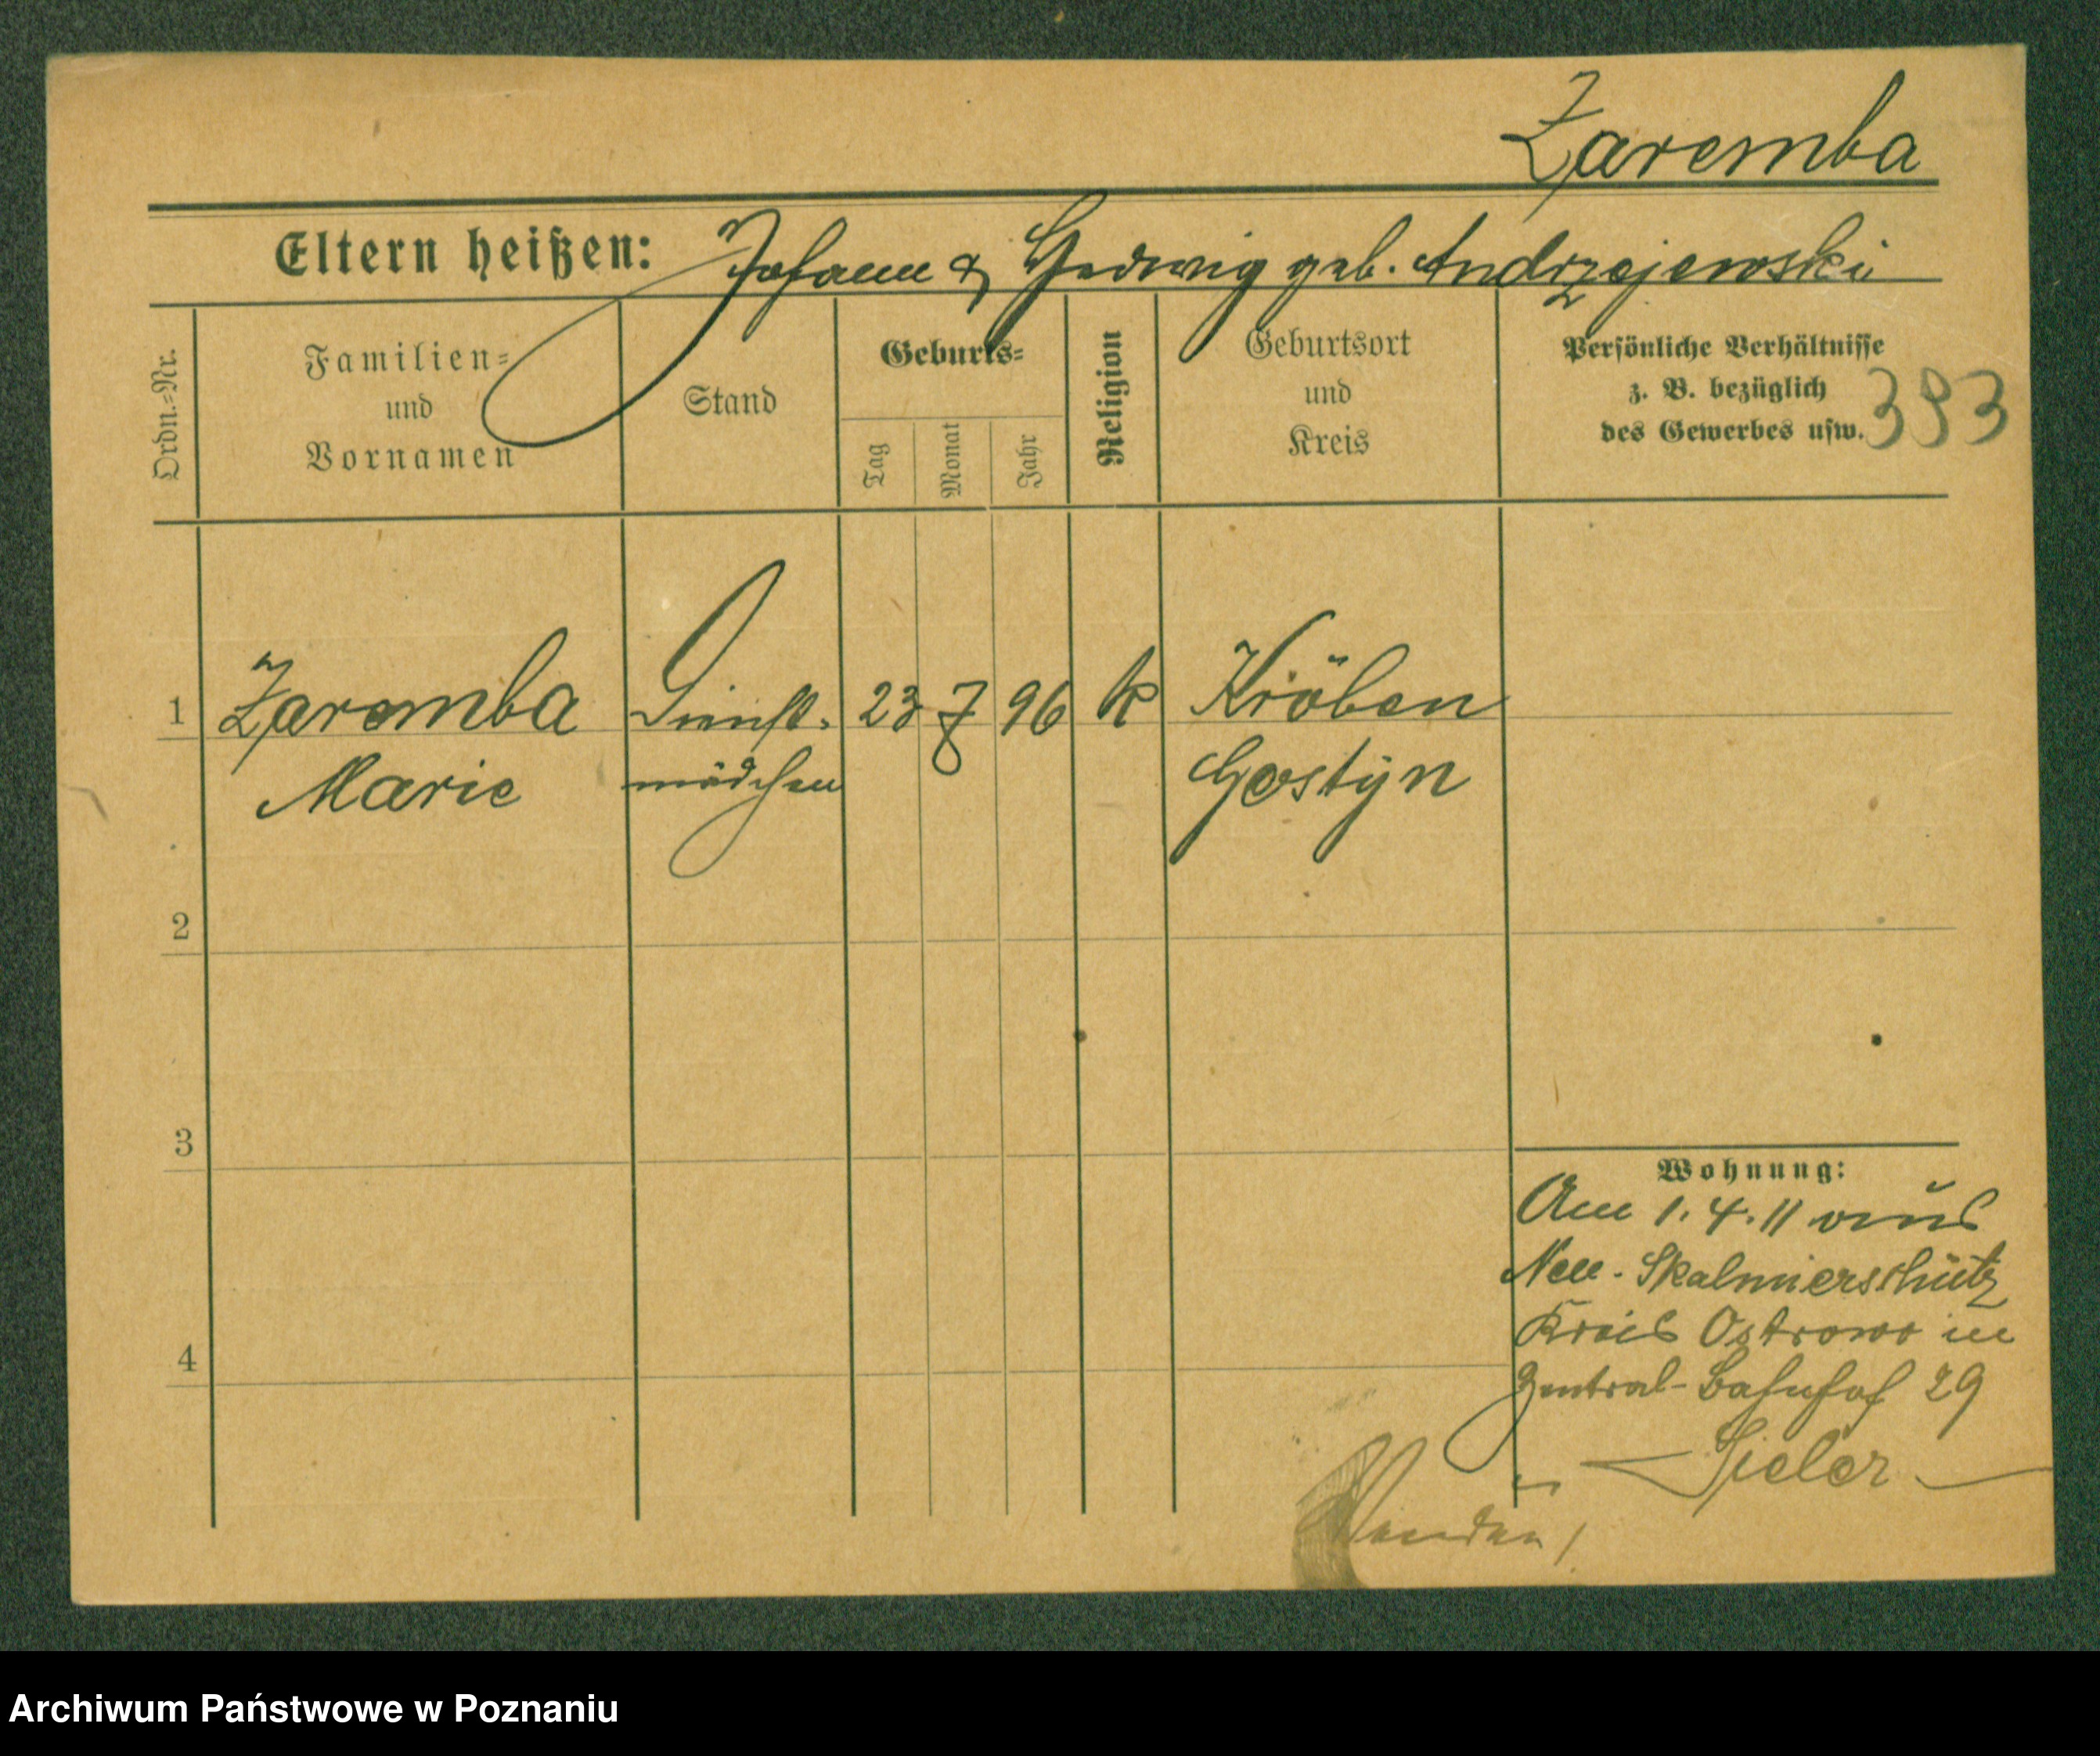 Zaremba
Eltern heißen: Johann & Hedwig geb. Andrzejewski
Ordn.=Nr.
Familien=
und
Vornamen
Stand
Geburts=
Tag
Monat
Jahr
Religion
Geburtsort
und
Kreis
Persönliche Verhältnisse
z. B. bezüglich
des Gewerbes usw.
393
1 Zaremba Dienst- 23 7 96 k Kröben
Marie mädchen Gostyn
2
3
4
Wohnung:
Am 1.4.11 aus
Neu-Skalmierschütz
Kreis Ostrowo in
Zentral-Bahnhof 29
Wenden!
Archiwum Państwowe w Poznaniu